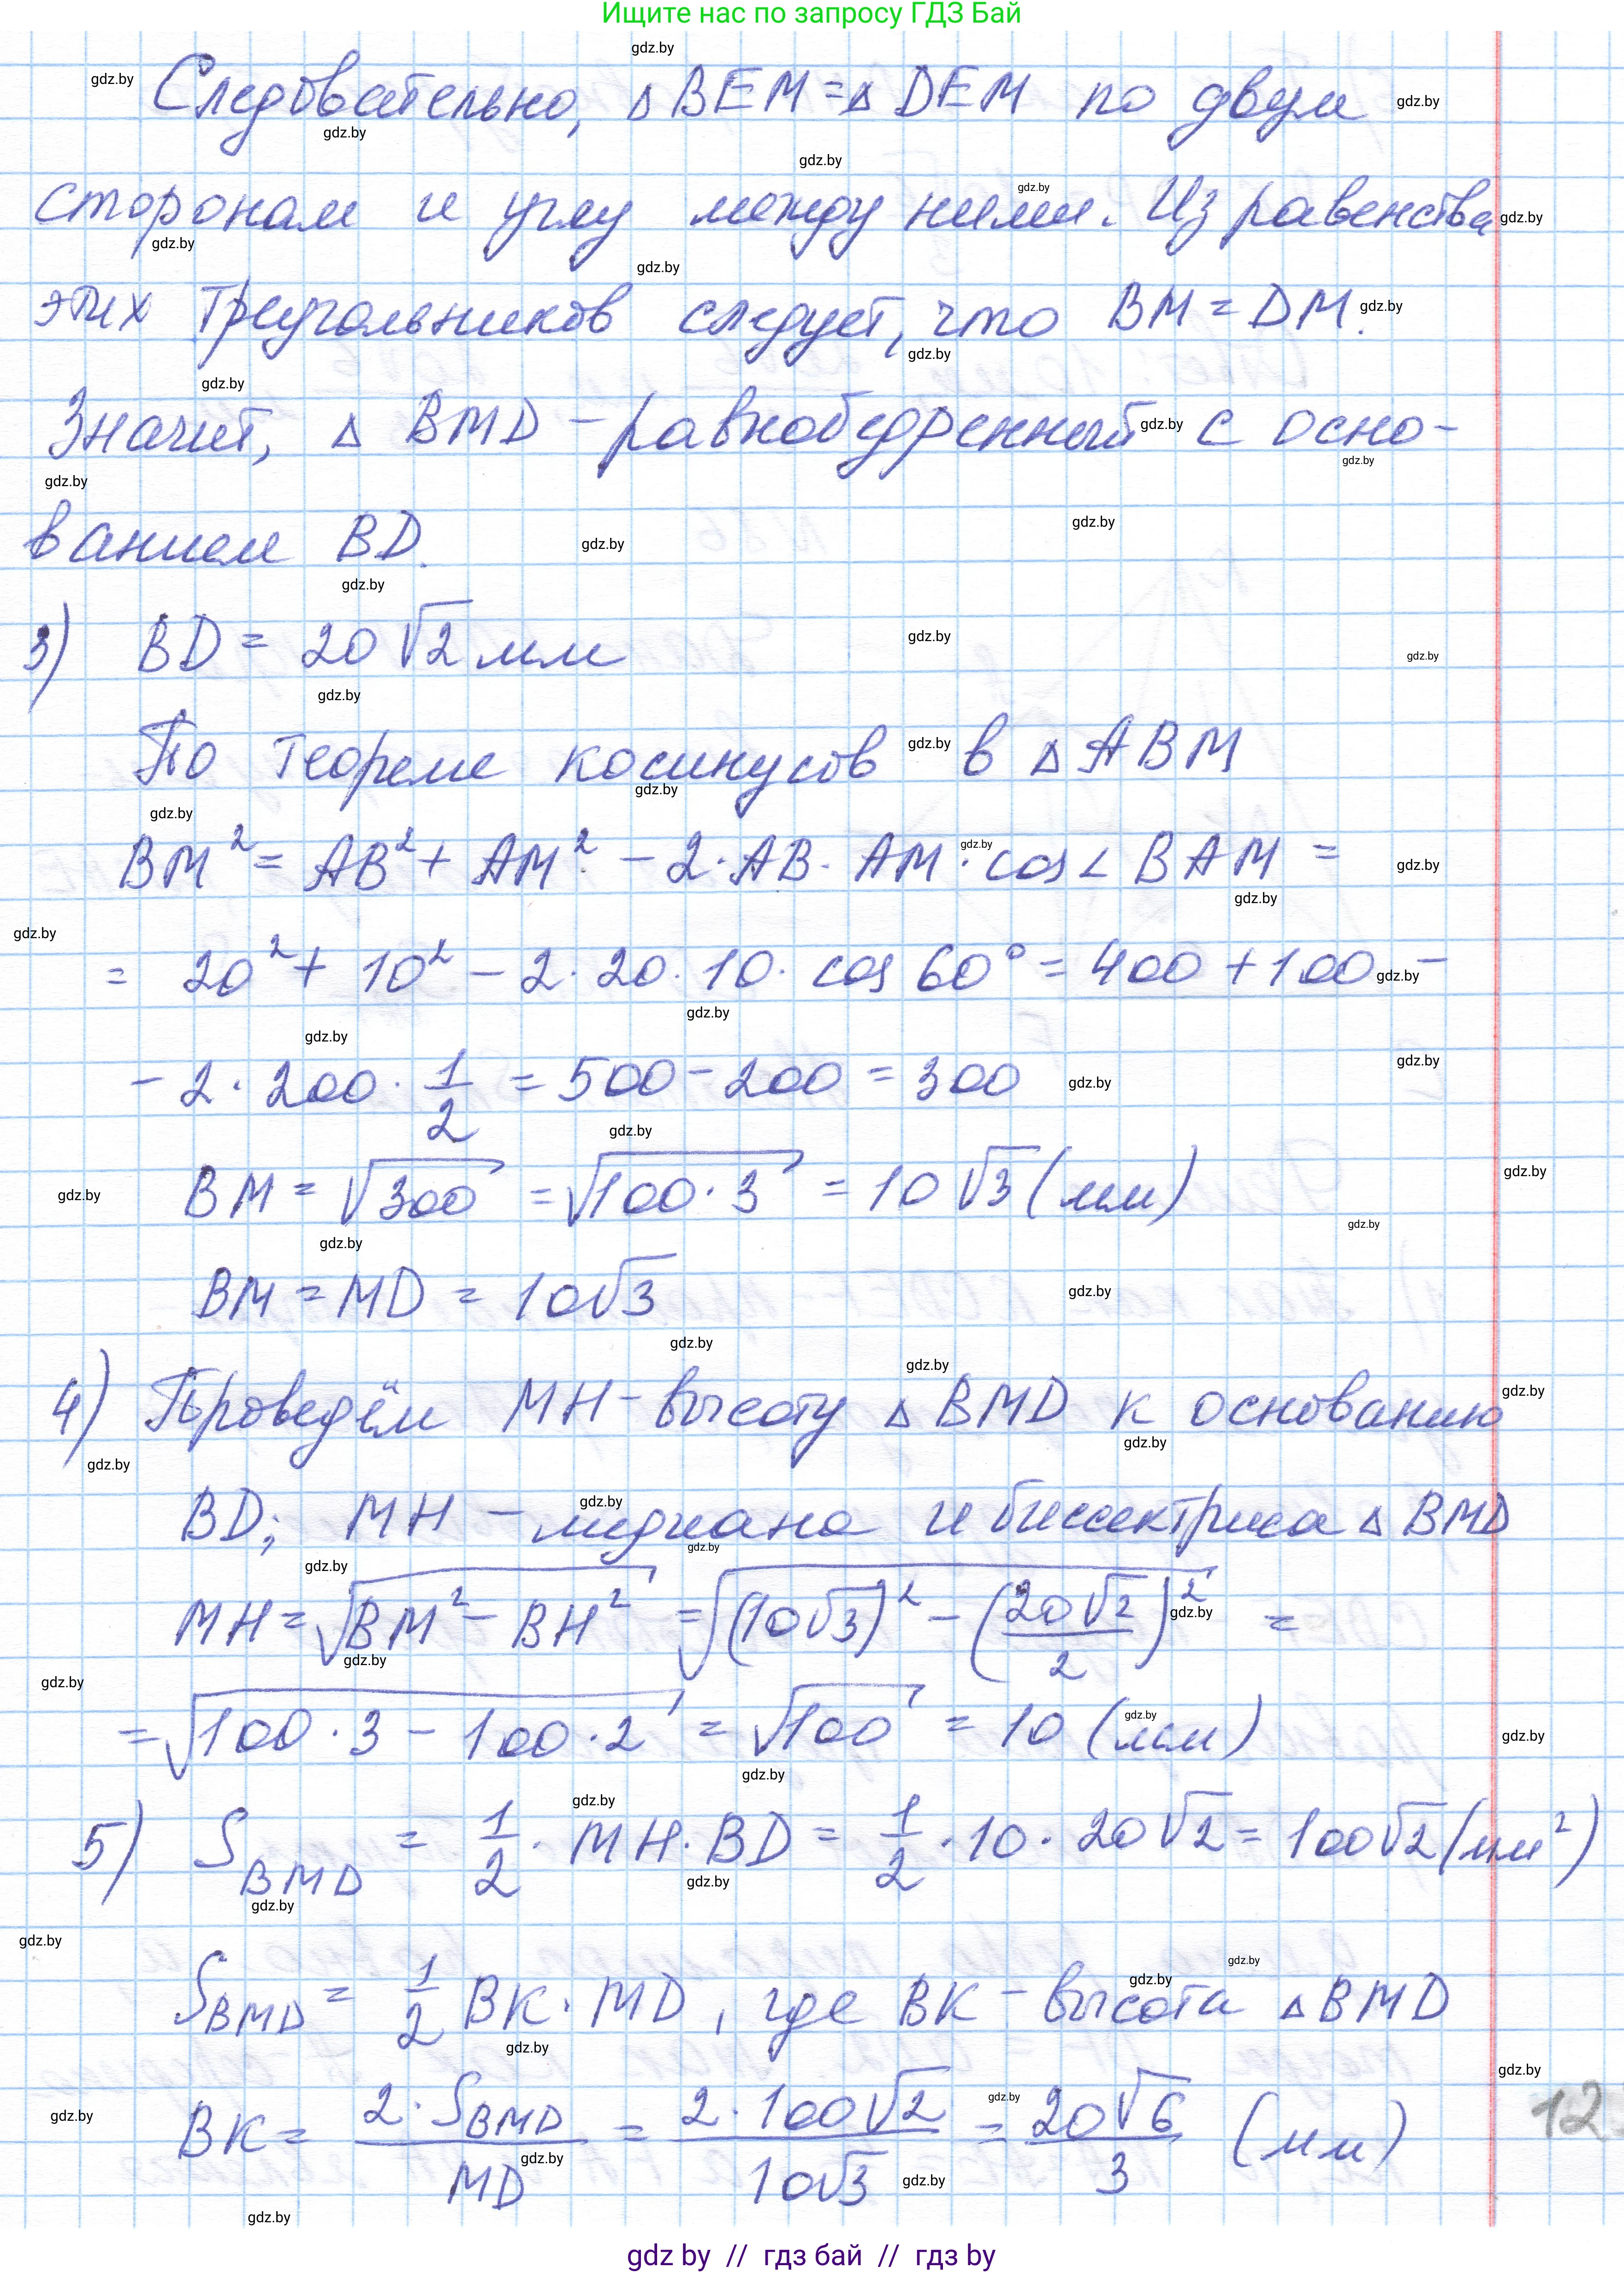 Ищите нас по запросу ГДЗ Бай
Следовательно, △ BEM = △ DEM по двум
сторонам и углу между ними. Из равенства
этих треугольников следует, что BM = DM.
Значит, △ BMD – равнобедренный с осно-
ванием BD.
3) BD = 20√2 мм
По теореме косинусов в △ ABM
BM² = AB² + AM² – 2·AB·AM·cos∠BAM =
= 20² + 10² – 2·20·10·cos 60° = 400 + 100 –
– 2·200·1/2 = 500 – 200 = 300
BM = √300 = √100·3 = 10√3 (мм)
BM = MD = 10√3
4) Проведём MH – высоту △ BMD к основанию
BD; MH – медиана и биссектриса △ BMD
MH = √(BM² – BH²) = √((10√3)² – (20√2/2)²) =
= √(100·3 – 100·2) = √100 = 10 (мм)
5) S_BMD = 1/2·MH·BD = 1/2·10·20√2 = 100√2 (мм²)
S_BMD = 1/2 BK·MD, где BK – высота △ BMD
BK = 2·S_BMD/MD = 2·100√2/10√3 = 20√6/3 (мм)
12
gdz by // гдз бай // гдз by